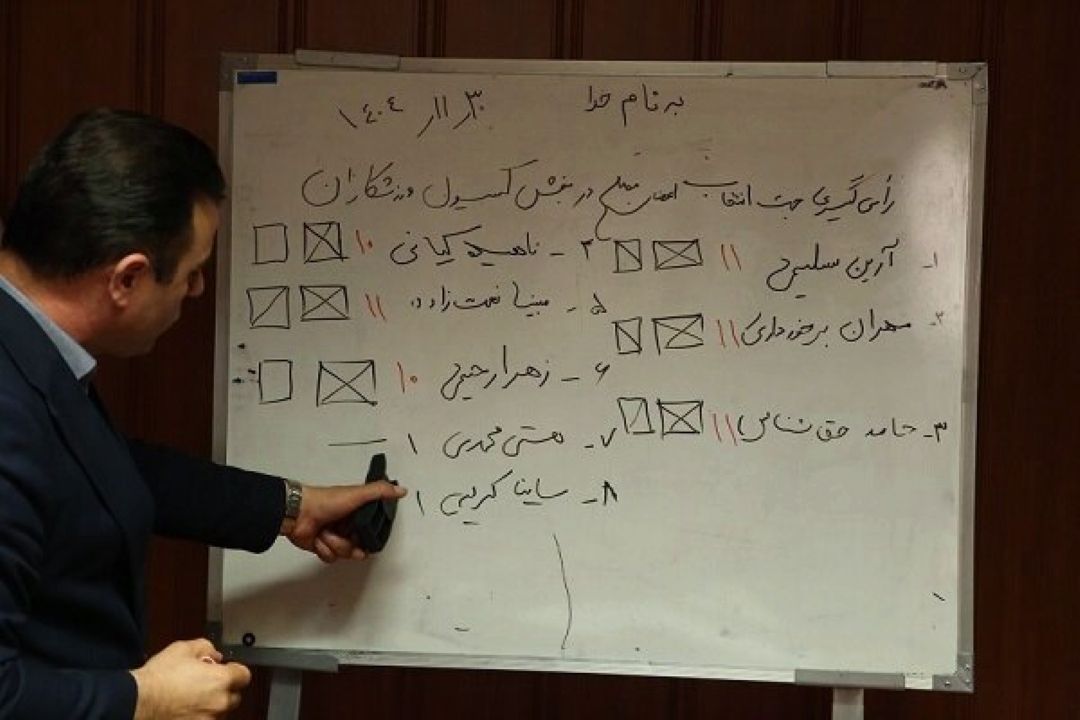 به نام خدا
۱۴۰۴/۱۱/۳۰
رأی‌گیری جهت انتخاب اعضای در بخش کمیسیون ورزشکاران
۱- آرین سلیمی ۱۱
۲- مهران برخورداری ۱۱
۳- حامد حق شناس ۱۱
۴- ناهید کیانی ۱۰
۵- مبینا نعمت زاده ۱۱
۶- زهرا رحیمی ۱۰
۷- هستی محمدی ۱
۸- ساینا کریمی ۱